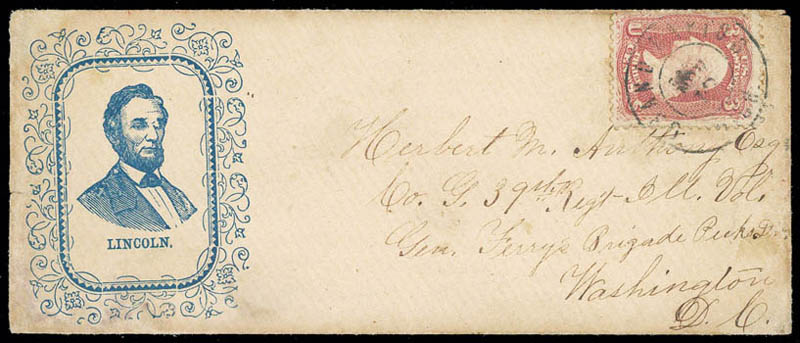 LINCOLN.
U 3
3
Herbert M. Anthony Esq
Co. G. 39th Regt Ill. Vol.
Gen. Ferry's Brigade Pecks
Washington
D. C.